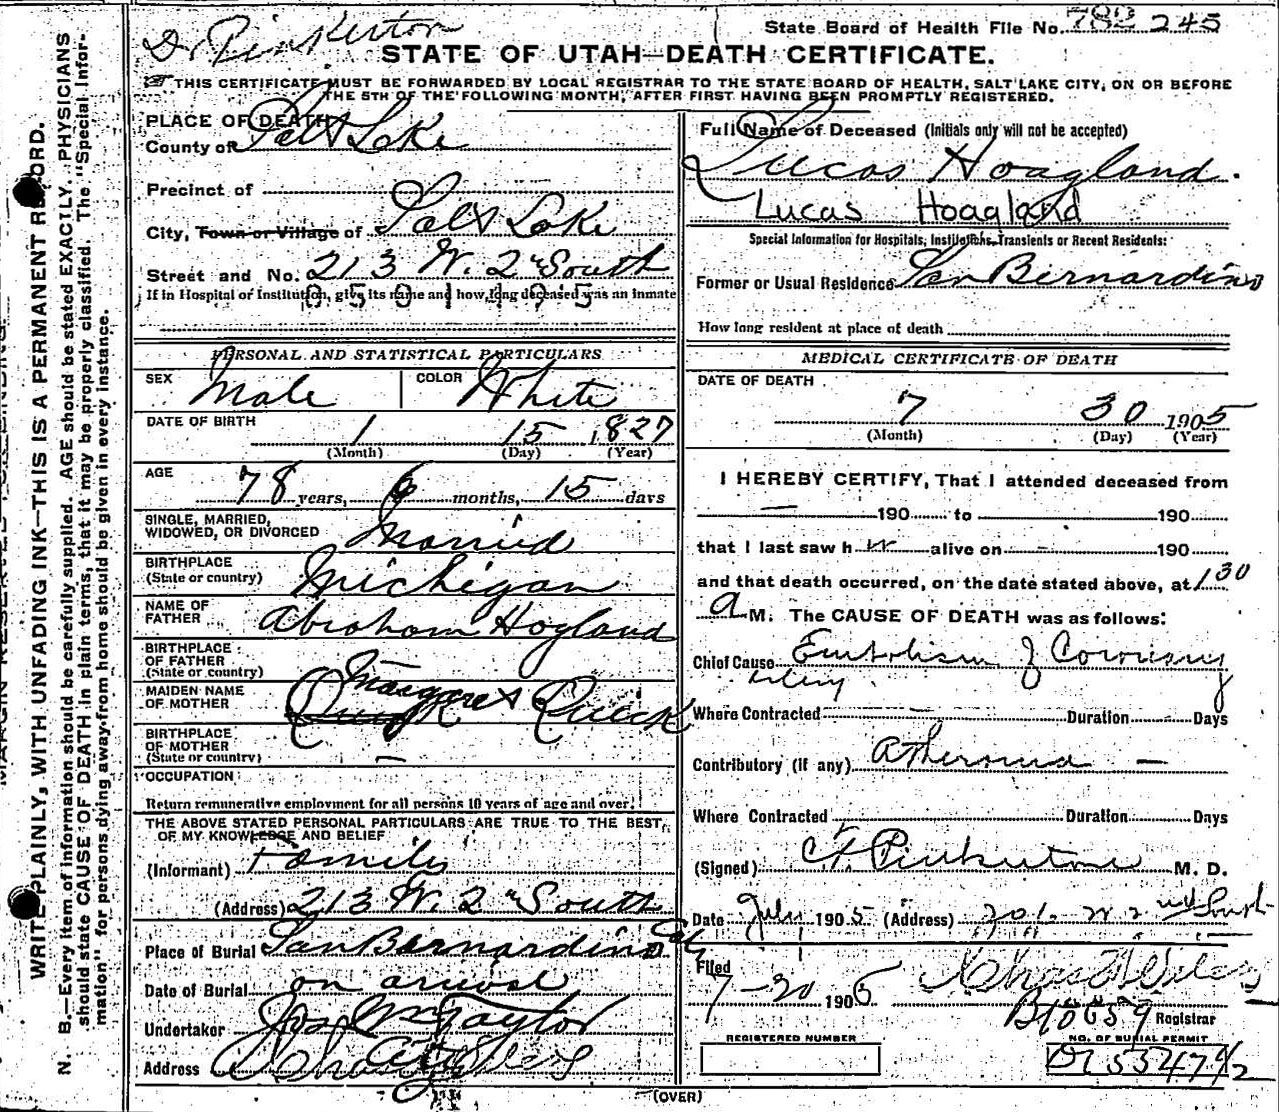 Dr Pinkerton
State Board of Health File No. 782 245
STATE OF UTAH—DEATH CERTIFICATE.
THIS CERTIFICATE MUST BE FORWARDED BY LOCAL REGISTRAR TO THE STATE BOARD OF HEALTH, SALT LAKE CITY, ON OR BEFORE
THE 5TH OF THE FOLLOWING MONTH, AFTER FIRST HAVING BEEN PROMPTLY REGISTERED.
WRITE PLAINLY, WITH UNFADING INK—THIS IS A PERMANENT RECORD.
N. B.—Every item of information should be carefully supplied. AGE should be stated EXACTLY. PHYSICIANS
should state CAUSE OF DEATH in plain terms, that it may be properly classified. The "Special Infor-
mation" for persons dying away from home should be given in every instance.
PLACE OF DEATH
County of Salt Lake
Precinct of
City, Town or Village of Salt Lake
Street and No. 213 W. 2nd South
If in Hospital or Institution, give its name and how long deceased was an inmate
0501495
PERSONAL AND STATISTICAL PARTICULARS
SEX Male COLOR White
DATE OF BIRTH
1 15 1827
(Month) (Day) (Year)
AGE
78 years, 6 months, 15 days
SINGLE, MARRIED,
WIDOWED, OR DIVORCED Married
BIRTHPLACE
(State or country) Michigan
NAME OF
FATHER Abraham Hogland
BIRTHPLACE
OF FATHER
(State or country)
MAIDEN NAME
OF MOTHER Margaret Quick
BIRTHPLACE
OF MOTHER
(State or country) —
OCCUPATION
Return remunerative employment for all persons 10 years of age and over.
THE ABOVE STATED PERSONAL PARTICULARS ARE TRUE TO THE BEST
OF MY KNOWLEDGE AND BELIEF
(Informant) Family
(Address) 213 W. 2nd South
Place of Burial San Bernardino Cal
Date of Burial on arrival
Undertaker Jos Wm Taylor
Address City
Full Name of Deceased (Initials only will not be accepted)
Lucas Hoagland.
Lucas Hoagland
Special Information for Hospitals, Institutions, Transients or Recent Residents:
Former or Usual Residence San Bernardino
How long resident at place of death
MEDICAL CERTIFICATE OF DEATH
DATE OF DEATH
7 30 1905
(Month) (Day) (Year)
I HEREBY CERTIFY, That I attended deceased from
— 190 to 190
that I last saw h alive on - 190
and that death occurred, on the date stated above, at 1 30
a M. The CAUSE OF DEATH was as follows:
Chief Cause Embolism of Coronary
artery
Where Contracted — Duration — Days
Contributory (if any) Atheroma —
Where Contracted Duration Days
(Signed) Pinkerton M. D.
Date July 1905 (Address) W 2nd South
Filed
7-30 1905 Chas
B10659 Registrar
REGISTERED NUMBER
NO. OF BURIAL PERMIT
(OVER)